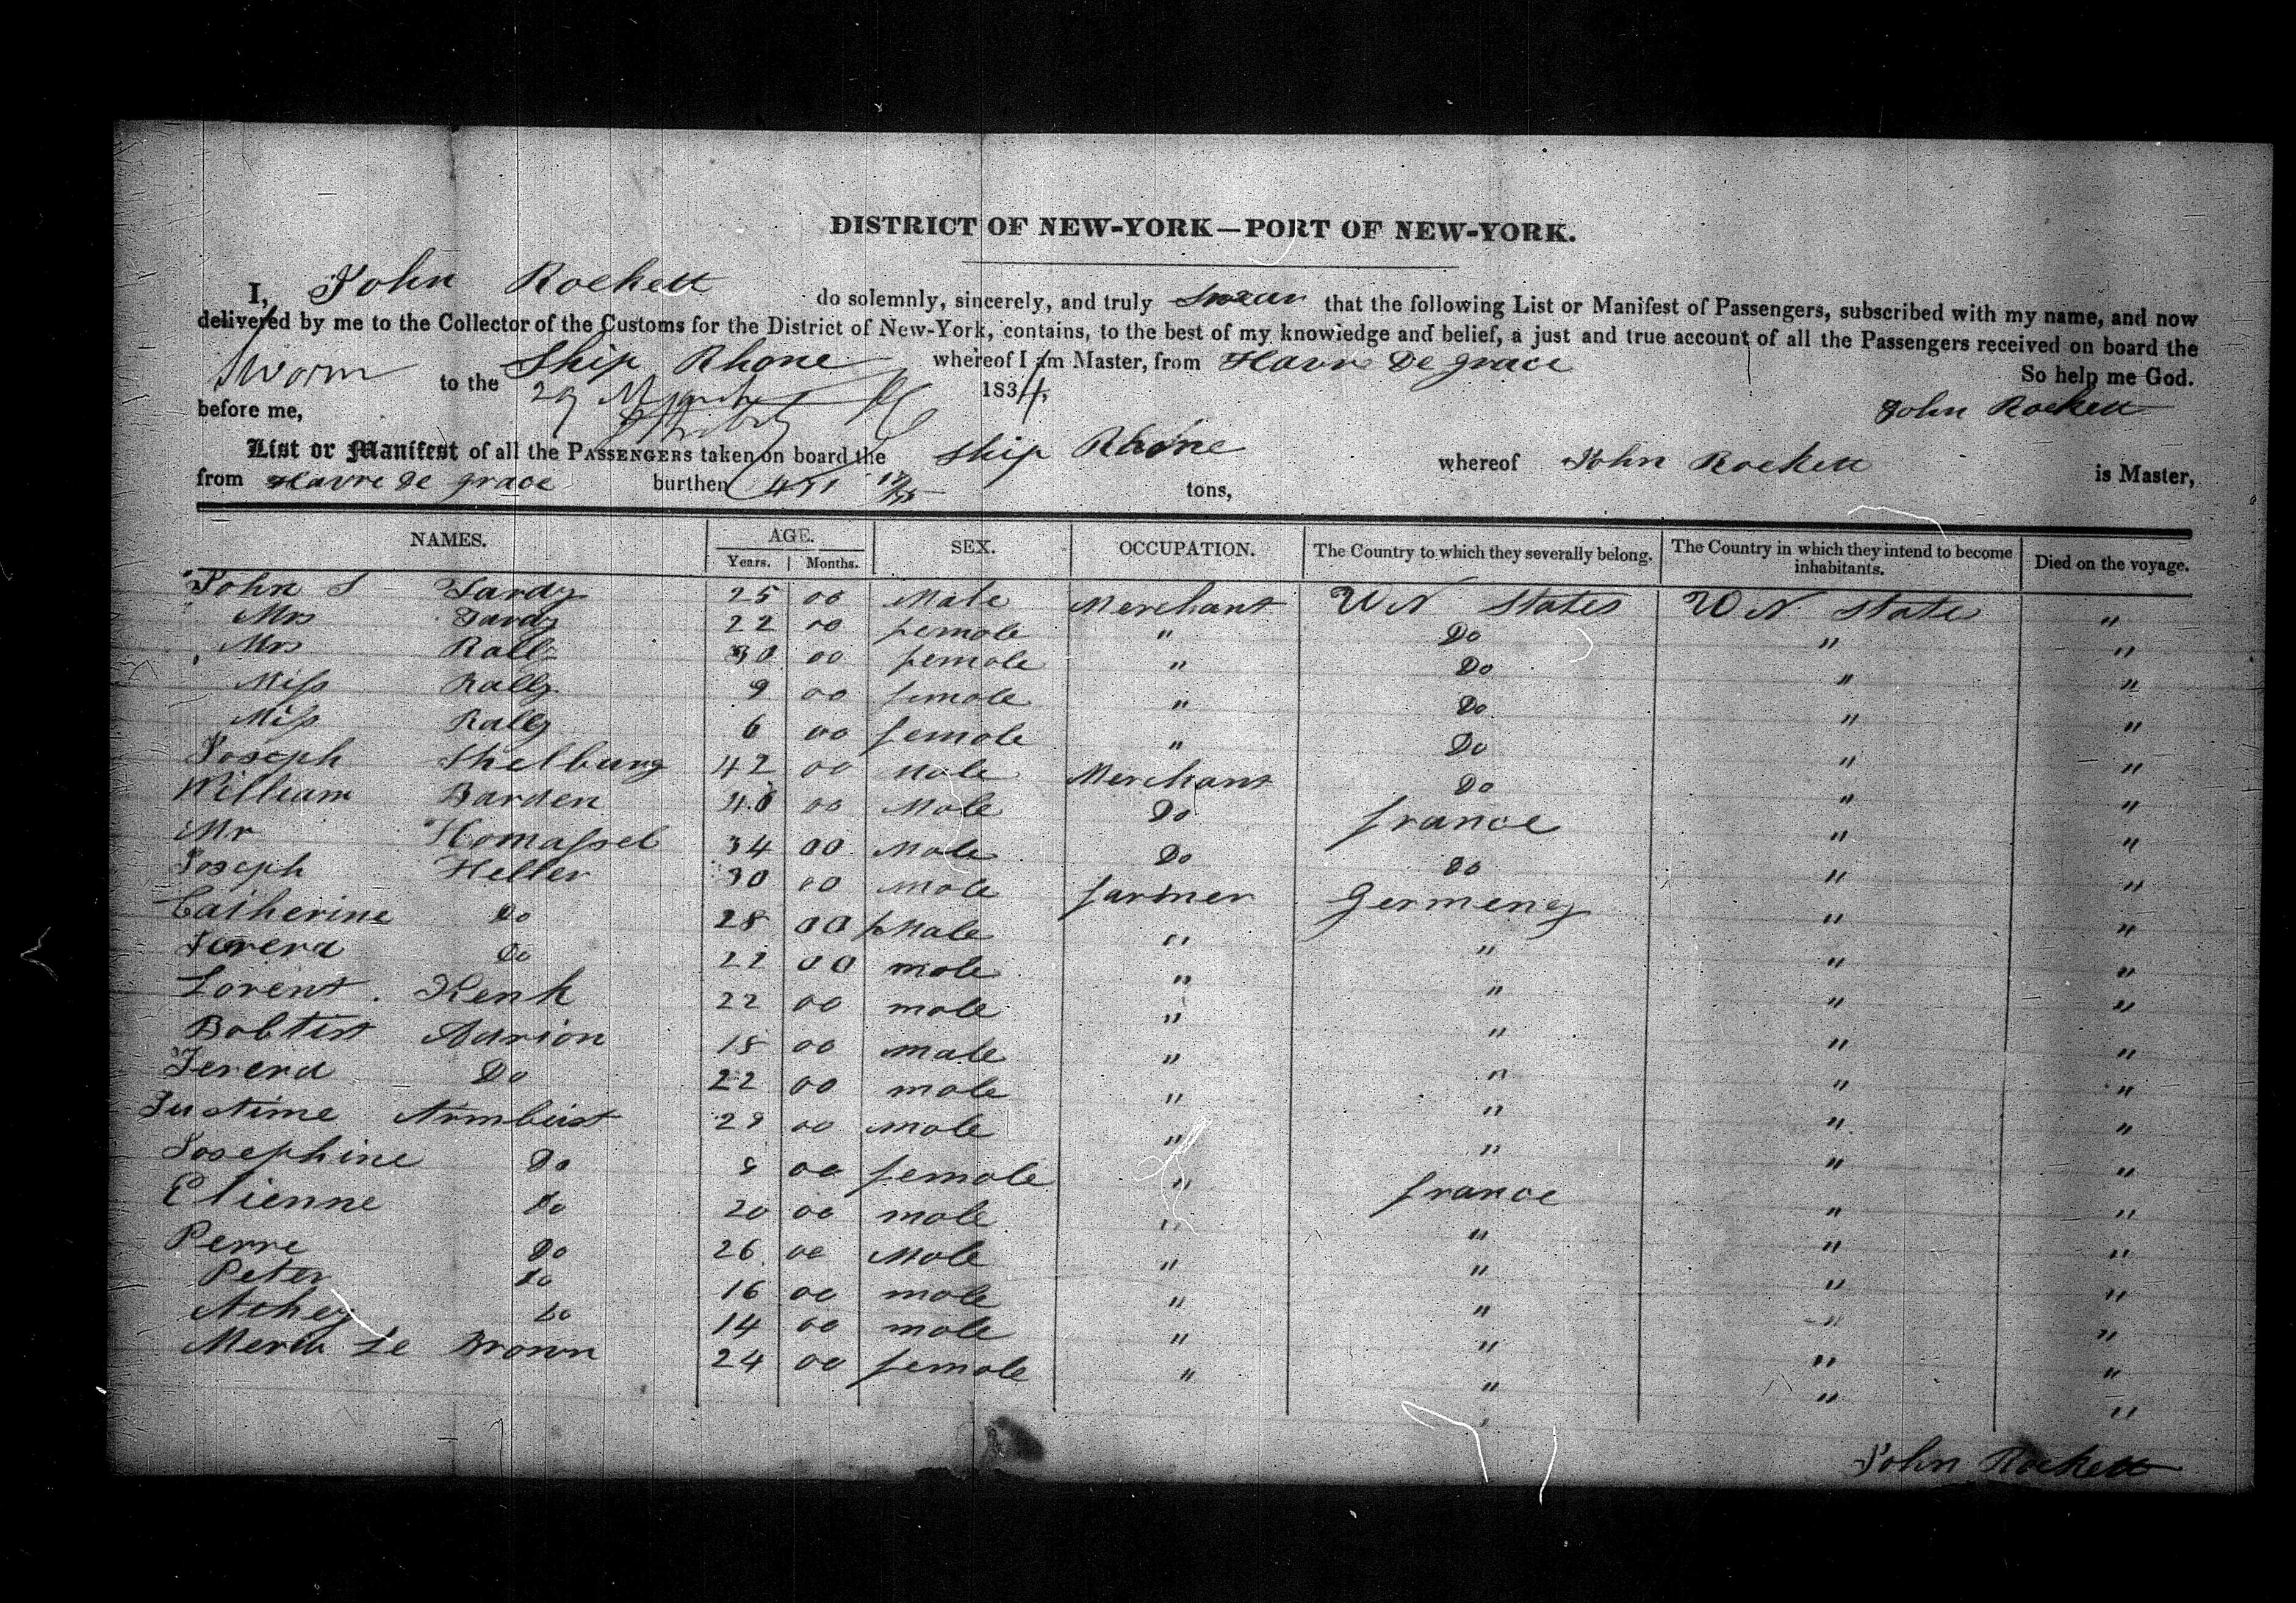 DISTRICT OF NEW-YORK—PORT OF NEW-YORK.
I, John Rockett do solemnly, sincerely, and truly Swear that the following List or Manifest of Passengers, subscribed with my name, and now
delivered by me to the Collector of the Customs for the District of New-York, contains, to the best of my knowledge and belief, a just and true account of all the Passengers received on board the
Ship Rhone whereof I am Master, from Havre De grace So help me God.
Sworn to the 29 1834, John Rockett
before me,
List or Manifest of all the PASSENGERS taken on board the Ship Rhone whereof John Rockett is Master,
from Havre de grace burthen tons,
NAMES. AGE. SEX. OCCUPATION. The Country to which they severally belong. The Country in which they intend to become inhabitants. Died on the voyage.
Years. Months.
John S Tardy 25 00 Male Merchant UN States UN State "
Mrs Tardy 22 00 female " Do " "
Mrs Rally 30 00 female " Do " "
Miss Rally 9 00 female " Do " "
Miss Rally 6 00 female " Do " "
Joseph Shelburg 42 00 Male Merchant Do " "
William Barden 40 00 Male Do france " "
Mr Homassel 34 00 Male Do Do " "
Joseph Heller 30 00 Male farmer Germeney " "
Catherine Do 28 00 Male " " " "
Do 22 00 male " " " "
Lorent Henk 22 00 male " " " "
Babtist Adrion 18 00 male " " " "
Fererd Do 22 00 male " " " "
Justime Armbust 28 00 Male " " " "
Josephine Do 8 00 female " france " "
Etienne Do 20 00 male " " " "
Perre Do 26 00 Male " " " "
Peter Do 16 00 male " " " "
Athey Do 14 00 male " " " "
Le Brown 24 00 female " " " "
John Rockett